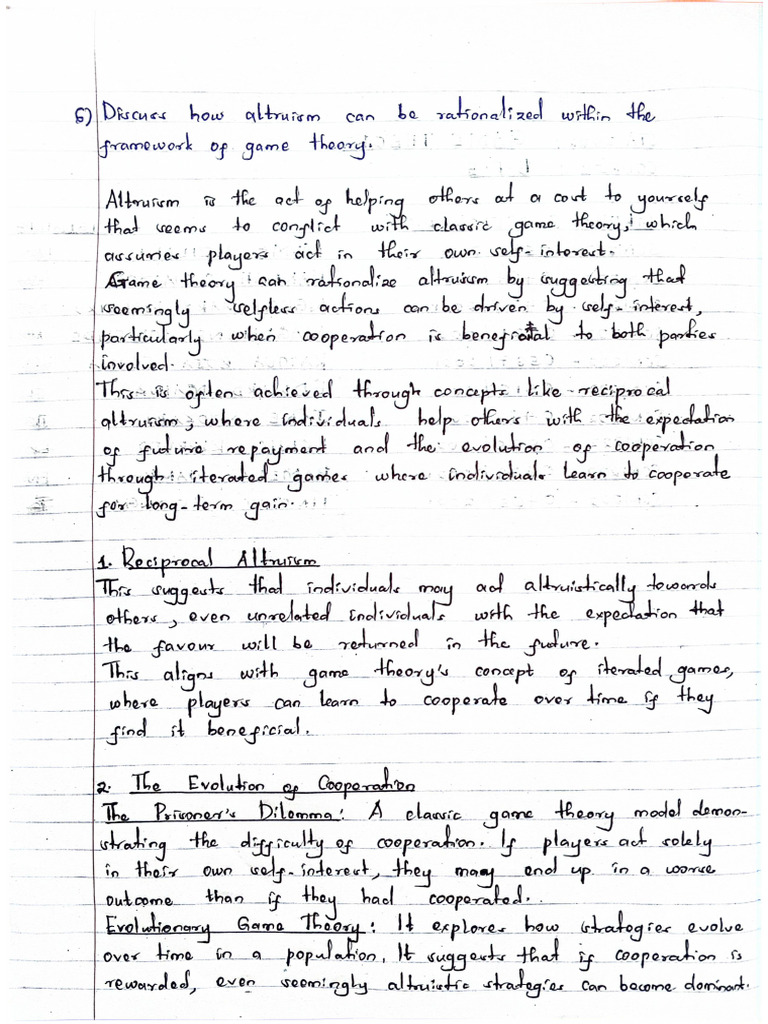 6) Discuss how altruism can be rationalized within the
framework of game theory.
Altruism is the act of helping others at a cost to yourself
that seems to conflict with classic game theory, which
assumes players act in their own self-interest.
Game theory can rationalize altruism by suggesting that
seemingly selfless actions can be driven by self-interest,
particularly when cooperation is beneficial to both parties
involved.
This is often achieved through concepts like reciprocal
altruism, where individuals help others with the expectation
of future repayment and the evolution of cooperation
through iterated games where individuals learn to cooperate
for long-term gain.
1. Reciprocal Altruism
This suggests that individuals may act altruistically towards
others, even unrelated individuals with the expectation that
the favour will be returned in the future.
This aligns with game theory's concept of iterated games,
where players can learn to cooperate over time if they
find it beneficial.
2. The Evolution of Cooperation
The Prisoner's Dilemma: A classic game theory model demon-
strating the difficulty of cooperation. If players act solely
in their own self-interest, they may end up in a worse
outcome than if they had cooperated.
Evolutionary Game Theory: It explores how strategies evolve
over time in a population. It suggests that if cooperation is
rewarded, even seemingly altruistic strategies can become dominant.